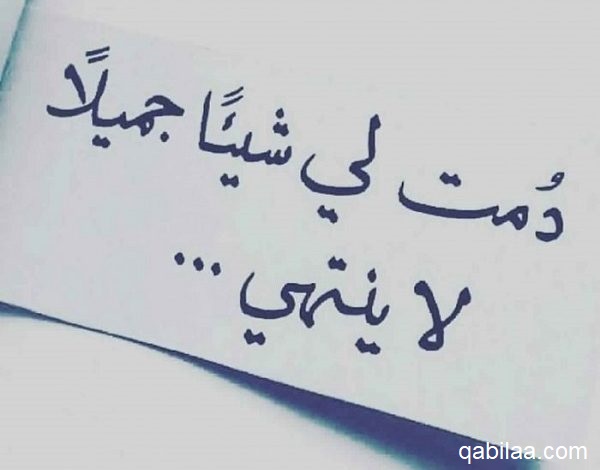 دُمت لي شيئًا جميلًا
لا ينتهي ...
qabilaa.com